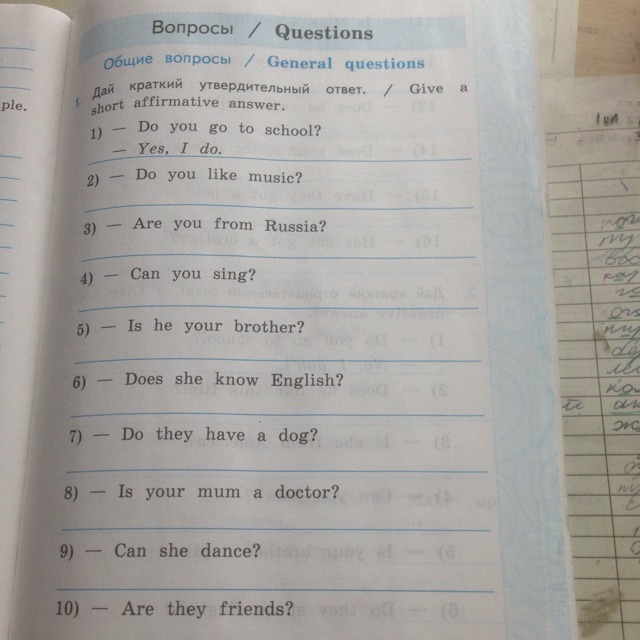 ple.
Вопросы / Questions
Общие вопросы / General questions
1. Дай краткий утвердительный ответ. / Give a
short affirmative answer.
1) — Do you go to school?
— Yes, I do.
2) — Do you like music?
3) — Are you from Russia?
4) — Can you sing?
5) — Is he your brother?
6) — Does she know English?
7) — Do they have a dog?
8) — Is your mum a doctor?
9) — Can she dance?
10) — Are they friends?